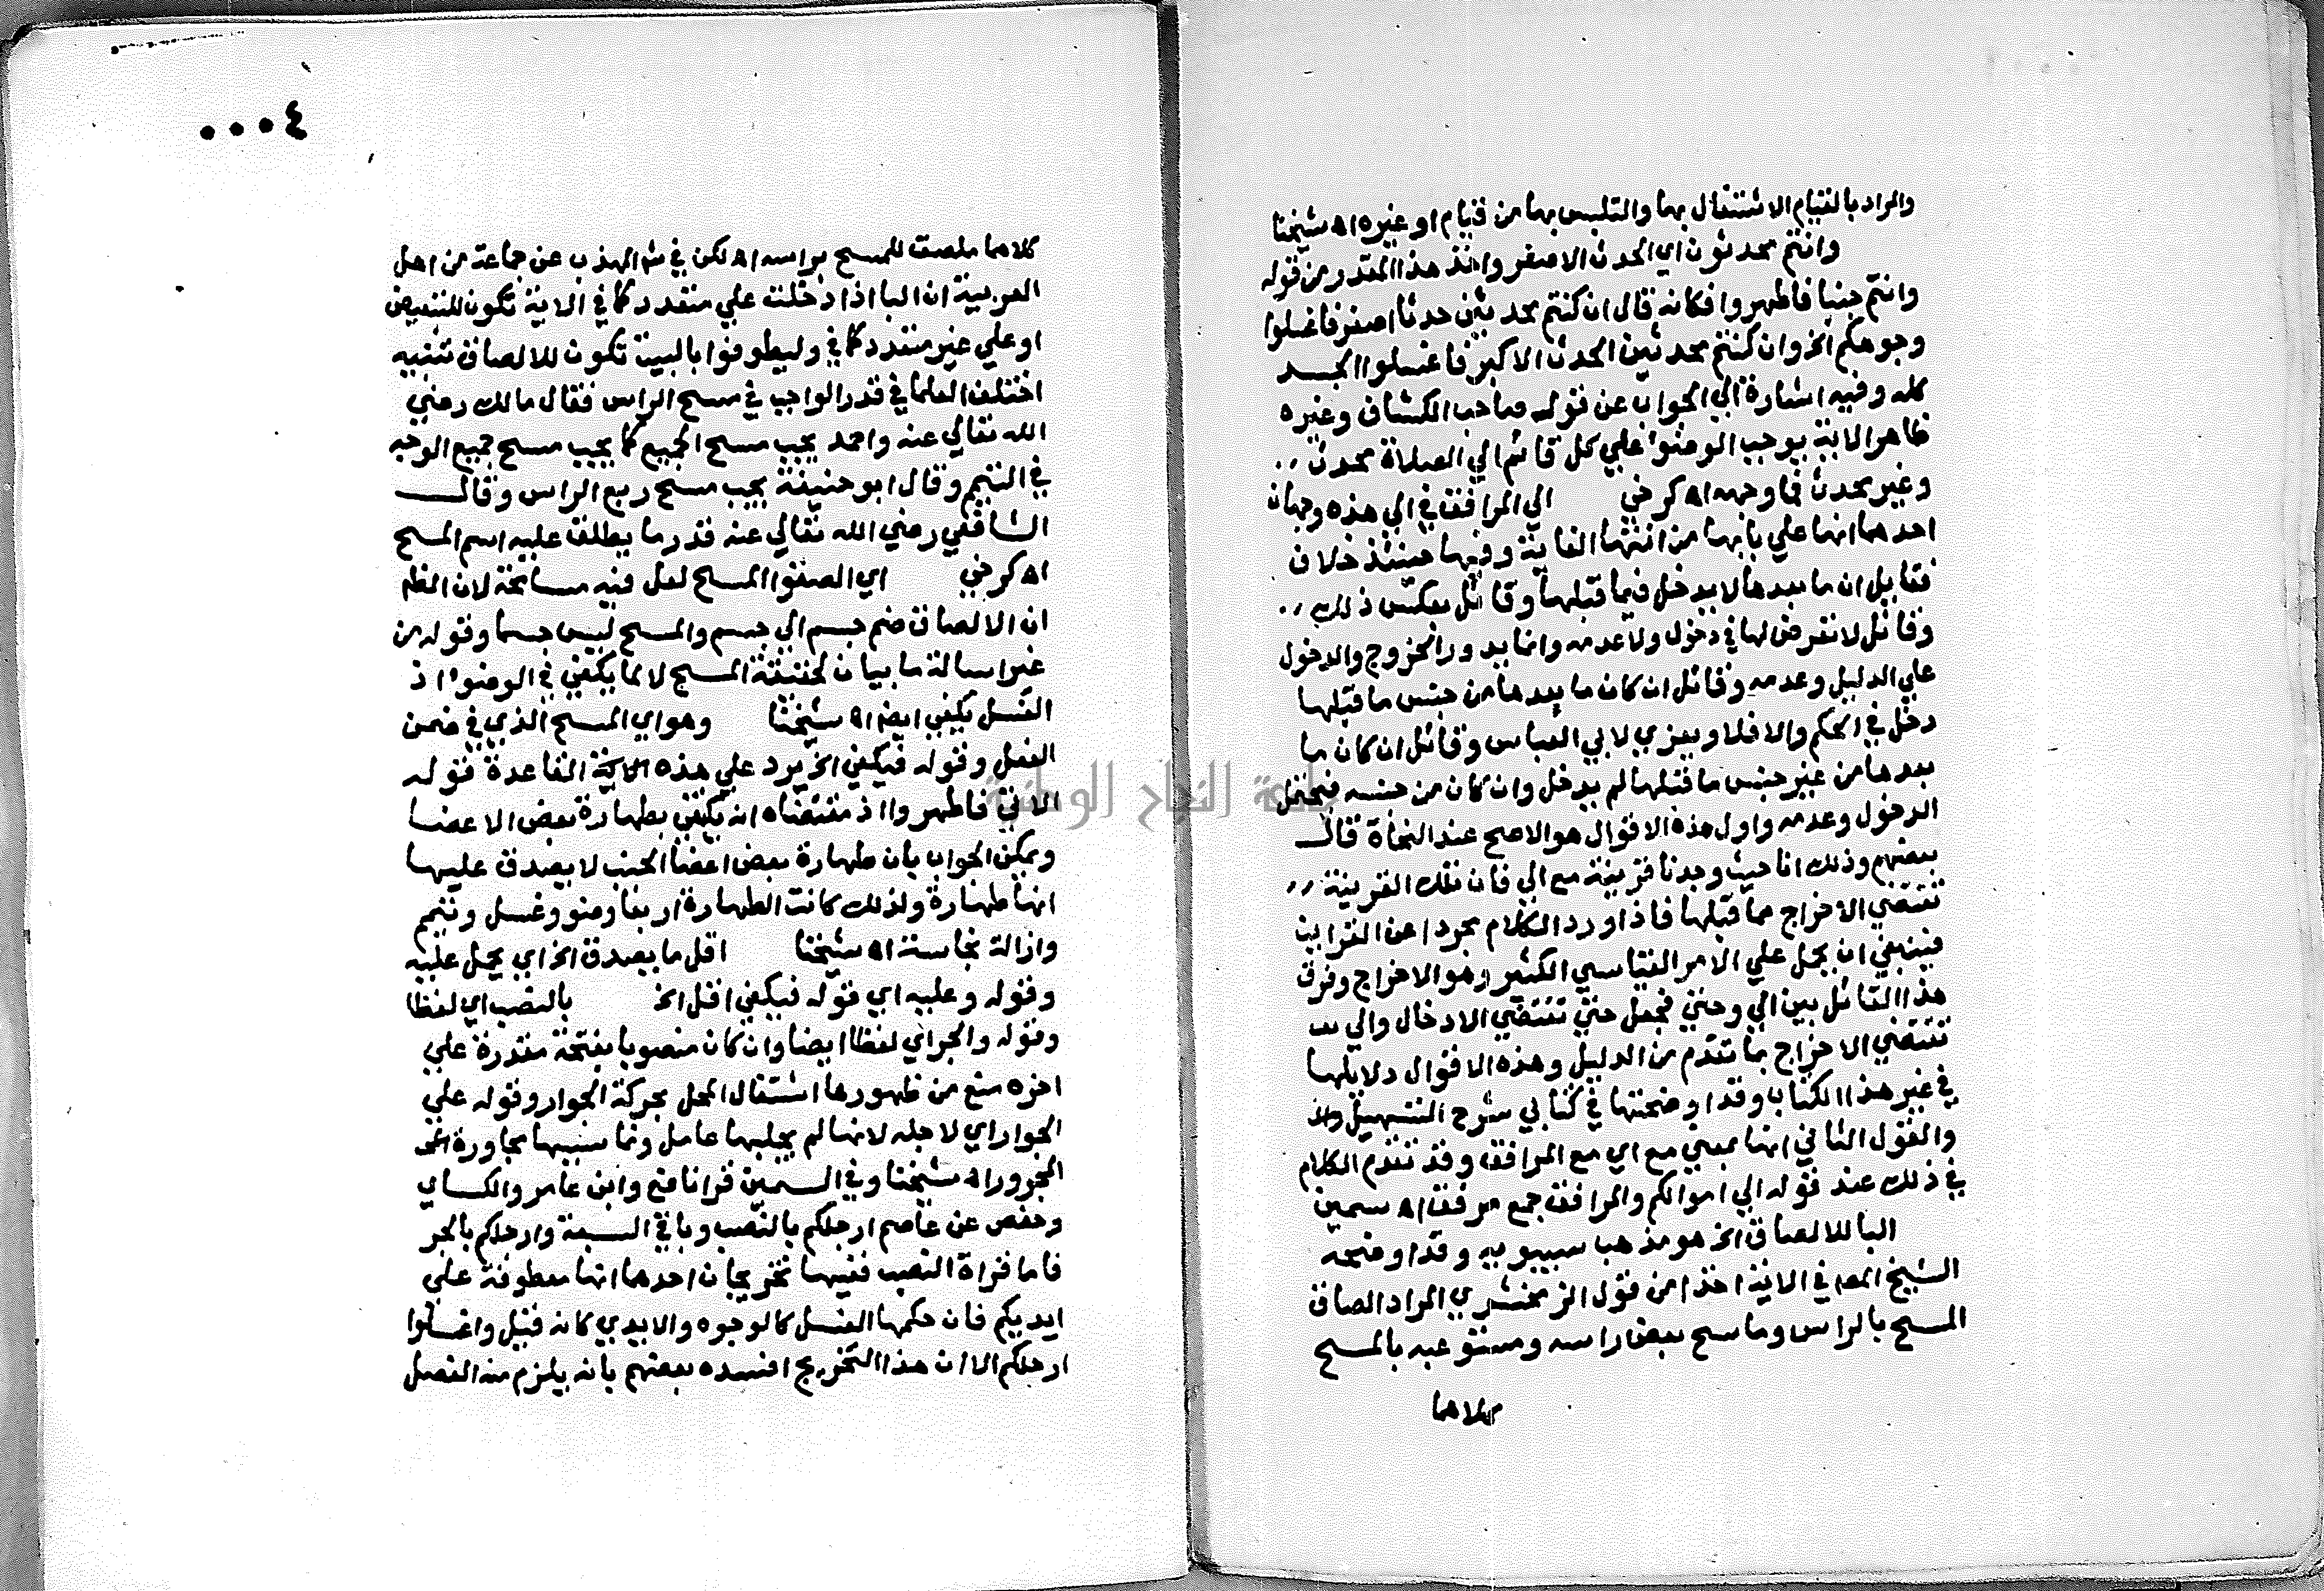 والمراد بالقيام الاشتغال بها والتلبس بها من قيام او غيره اه شيخنا
وانتم محدثون اي الحدث الاصغر واخذ هذا المقدر من قوله
وانتم جنبا فاطهروا فكانه قال ان كنتم محدثين حدثا اصغر فاغسلوا
وجوهكم الخ وان كنتم محدثين الحدث الاكبر فاغسلوا الجسد
كله وفيه اشارة الي الجواب عن قول صاحب الكشاف وغيره
ظاهر الاية يوجب الوضوء علي كل قائم الي الصلاة محدث
وغير محدث فما وجهه اه كرخي الي المرافق في الي هذه وجهان
احدهما انها علي بابها من انتهاء الغاية وفيها حينئذ خلاف
فقايل ان ما بعدها لا يدخل فيما قبلها وقائل بعكس ذلك
وقائل لا تعرض لها في دخول ولا عدمه وانما يدور الخروج والدخول
علي الدليل وعدمه وقائل ان كان ما بعدها من جنس ما قبلها
دخل في الحكم والا فلا ويعزي لابي العباس وقائل ان كان ما
بعدها من غير جنس ما قبلها لم يدخل وان كان من جنسه فيحتمل
الدخول وعدمه واول هذه الاقوال هو الاصح عند النحاة قال
بعضهم وذلك انا حيث وجدنا قرينة مع الي فان تلك القرينة
تقتضي الاخراج مما قبلها فاذا ورد الكلام مجردا عن القراين
فينبغي ان يحمل علي الامر القياسي الكثير وهو الاخراج وفرق
هذا القائل بين الي وحتي فجعل حتي تقتضي الادخال والي
تقتضي الاخراج بما تقدم من الدليل وهذه الاقوال دلايلها
في غير هذا الكتاب وقد اوضحتها في كتابي شرح التسهيل
والقول الثاني انها بمعني مع اي مع المرافق وقد تقدم الكلام
في ذلك عند قوله الي اموالكم والمرافق جمع مرفق اه سمين
البا للالصاق الخ هو مذهب سيبويه وقد اوضحه
الشيخ المص في الاية اخذا من قول الزمخشري المراد الصاق
المسح بالراس وماسح بعض راسه ومستوعبه بالمسح
كلاهما
٠٠٠٤
كلاهما ملصق للمسح براسه اه لكن في شر المهذب عن جماعة من اهل
العربية ان البا اذا دخلت علي متعدد كما في الاية تكون للتبعيض
او علي غير متعدد كما في وليطوفوا بالبيت تكون للالصاق تنبيه
اختلف العلما في قدر الواجب في مسح الراس فقال مالك رضي
الله تعالي عنه واحمد يجب مسح الجميع كما يجب مسح جميع الوجه
في التيمم وقال ابو حنيفة يجب مسح ربع الراس وقال
الشافعي رضي الله تعالي عنه قدر ما يطلق عليه اسم المسح
اه كرخي اي الصقوا المسح لعل فيه مسامحة لان الظم
ان الالصاق ضم جسم الي جسم والمسح ليس جسما وقوله من
غير اسالة ما بيان لحقيقة المسح لا لما يكفي في الوضوء اذ
الغسل يكفي ايضا اه شيخنا وهو اي المسح الذي في ضمن
الفعل وقوله فيكفي الخ يرد علي هذه الاكية القاعدة قوله
الاتي فاطهروا اذ مقتضاه انه يكفي بطهارة بعض الاعضا
ويمكن الجواب بان طهارة بعض اعضا الجنب لا يصدق عليها
انها طهارة ولذلك كانت الطهارة اربعا وضو وغسل وتيمم
وازالة نجاسة اه شيخنا اقل ما يصدق الخ اي يحمل عليه
وقوله وعليه اي قوله فيكفي اقل الخ بالنصب اي لفظا
وقوله والجر اي لفظا ايضا وان كان منصوبا بفتحة مقدرة علي
اخره منع من ظهورها اشتغال المحل بحركة الجوار وقوله علي
الجوار اي لاجله لانها لم يجلبها عامل ونما سببها مجاورة
المجرور اه شيخنا وفي السمين قرا نافع وابن عامر والكساي
وحفص عن عاصم ارجلكم بالنصب وباقي السبعة وارجلكم بالجر
فاما قراة النصب ففيها تخريجان احدهما انها معطوفة علي
ايديكم فان حكمها الغسل كالوجوه والايدي كانه قيل واغسلوا
ارجلكم الا ان هذا التخريج افسده بعضهم بانه يلزم منه الفصل